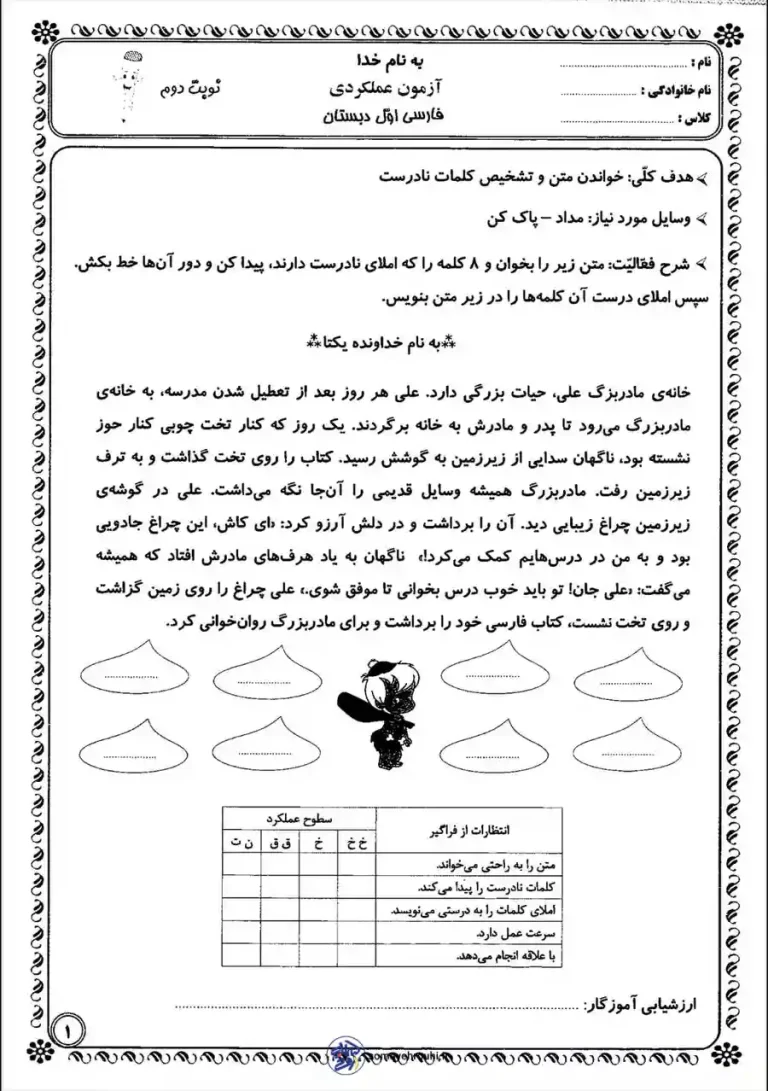 نام : ..............................
به نام خدا
نام خانوادگی : ..............................
آزمون عملکردی
نوبت دوم
کلاس : ..............................
فارسی اوّل دبستان
هدف کلّی: خواندن متن و تشخیص کلمات نادرست
وسایل مورد نیاز: مداد – پاک کن
شرح فعّالیّت: متن زیر را بخوان و ۸ کلمه را که املای نادرست دارند، پیدا کن و دور آن‌ها خط بکش.
سپس املای درست آن کلمه‌ها را در زیر متن بنویس.
⁂به نام خداونده یکتا⁂
خانه‌ی مادربزگ علی، حیات بزرگی دارد. علی هر روز بعد از تعطیل شدن مدرسه، به خانه‌ی
مادربزرگ می‌رود تا پدر و مادرش به خانه برگردند. یک روز که کنار تخت چوبی کنار حوز
نشسته بود، ناگهان سدایی از زیرزمین به گوشش رسید. کتاب را روی تخت گذاشت و به ترف
زیرزمین رفت. مادربزرگ همیشه وسایل قدیمی را آن‌جا نگه می‌داشت. علی در گوشه‌ی
زیرزمین چراغ زیبایی دید. آن را برداشت و در دلش آرزو کرد: «ای کاش، این چراغ جادویی
بود و به من در درس‌هایم کمک می‌کرد!» ناگهان به یاد هرف‌های مادرش افتاد که همیشه
می‌گفت: «علی جان! تو باید خوب درس بخوانی تا موفق شوی.» علی چراغ را روی زمین گزاشت
و روی تخت نشست، کتاب فارسی خود را برداشت و برای مادربزرگ روان‌خوانی کرد.
انتظارات از فراگیر
سطوح عملکرد
خ خ
خ
ق ق
ن ت
متن را به راحتی می‌خواند.
کلمات نادرست را پیدا می‌کند.
املای کلمات را به درستی می‌نویسد.
سرعت عمل دارد.
با علاقه انجام می‌دهد.
ارزشیابی آموزگار: ..............................
۱